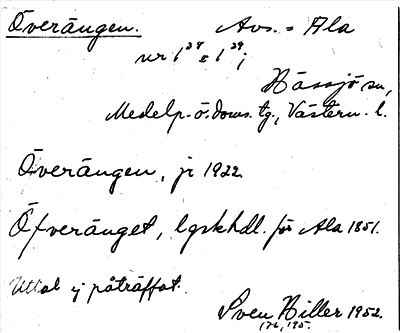 Överängen. Avs. = Ala
nr 1²⁸ o 1²⁹;
Hässjö sn,
Medelp. ö. doms. tg., Västern. l.
Överängen, jr 1922.
Öfveränget, lgskhdl. för Ala 1851.
Uttal ej påträffat.
Sven Hiller 1952.
176, 195.